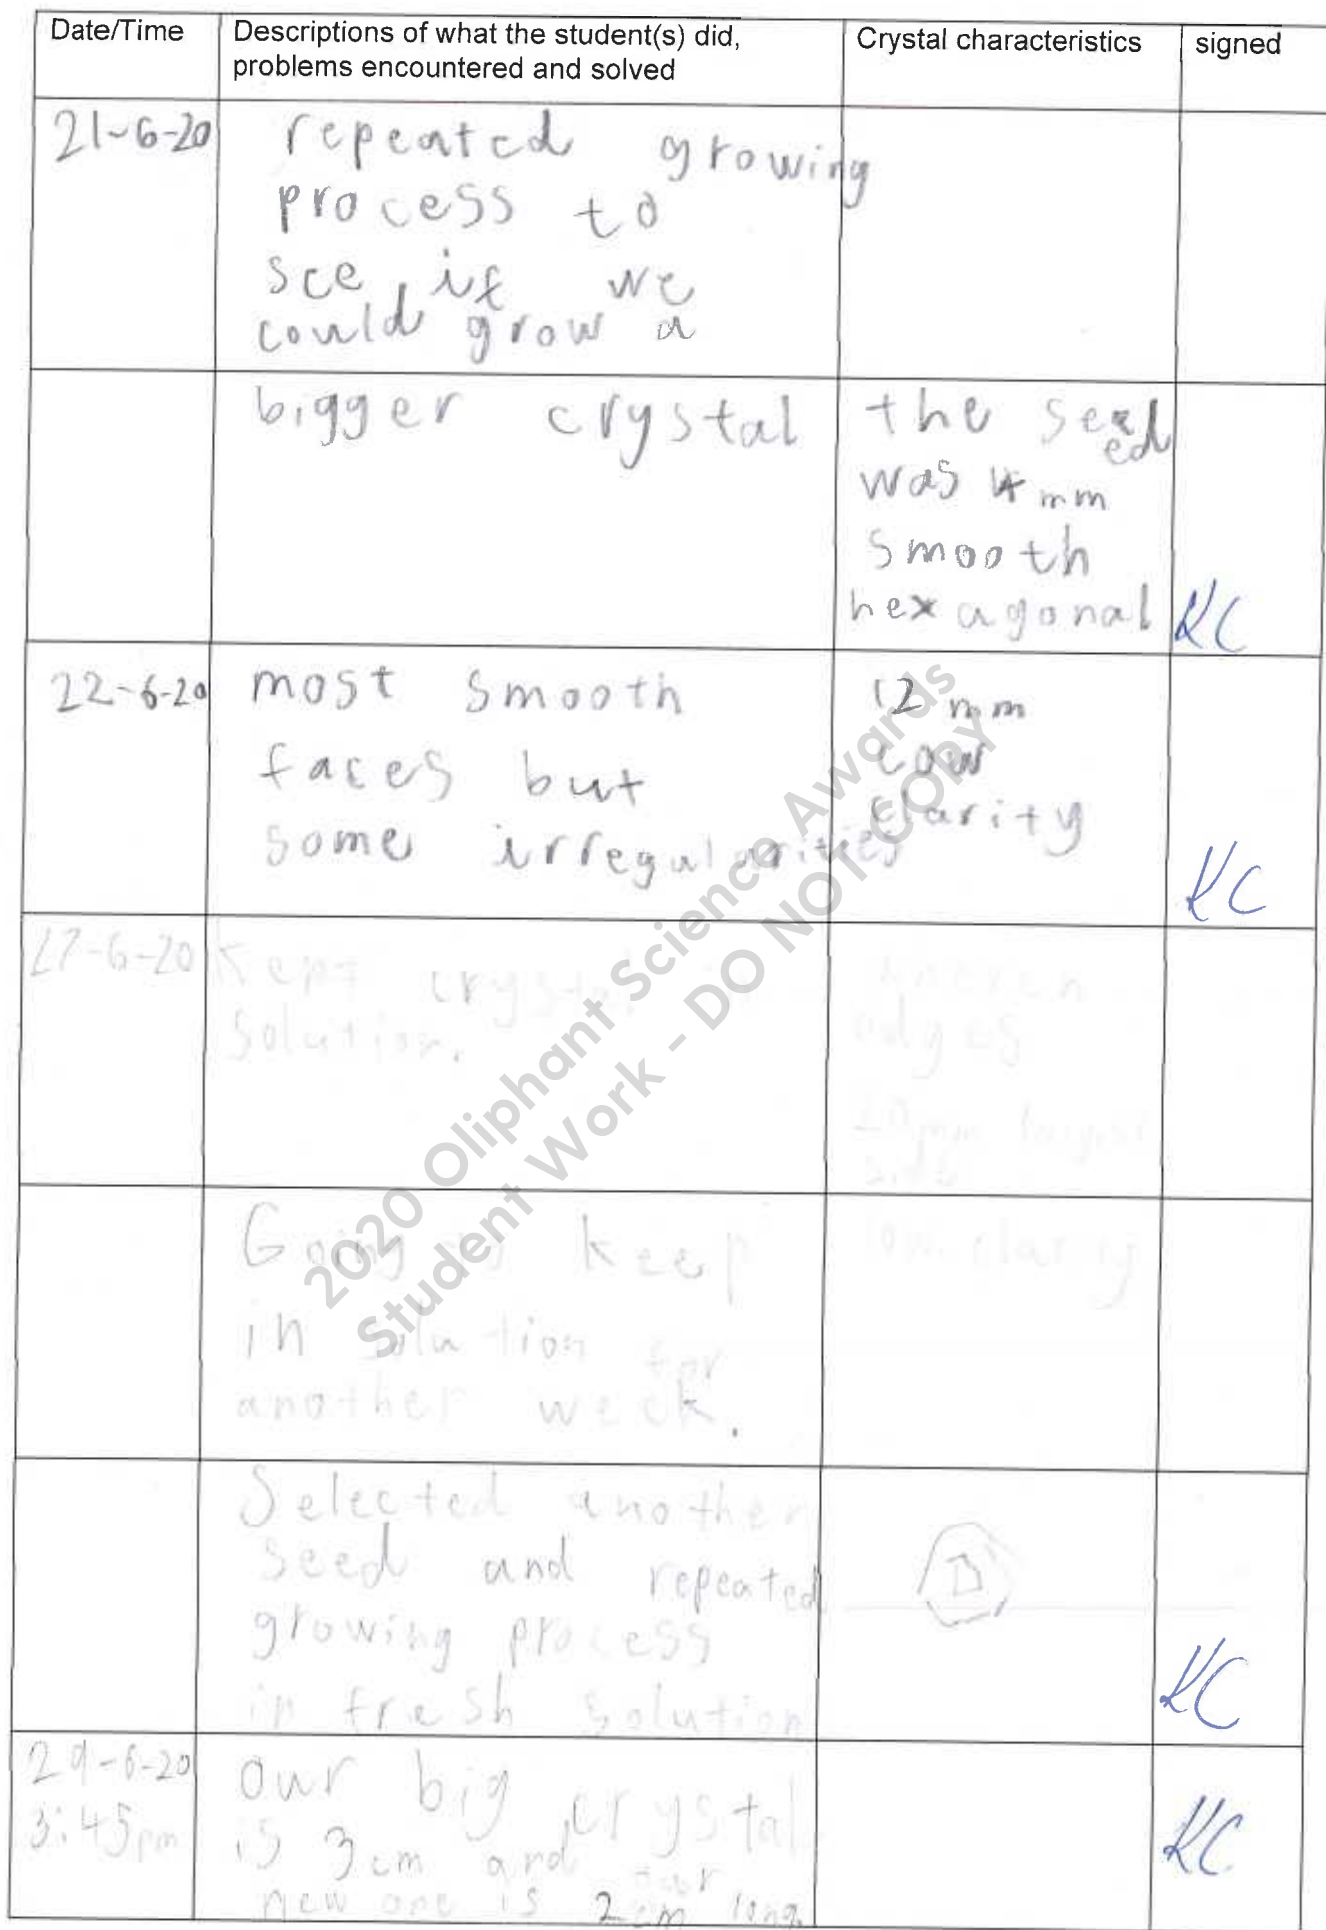 Date/Time
Descriptions of what the student(s) did,
problems encountered and solved
Crystal characteristics
signed
21-6-20
repeated growing
process to
see if we
could grow a
bigger crystal
the seed
was 4mm
smooth
hexagonal
KC
22-6-20
most smooth
faces but
some irregularities
12 mm
low
clarity
KC
27-6-20
Kept crystal in
solution.
uneven
edges
20mm largest
side
Going to keep
in solution for
another week.
low clarity
Selected another
seed and repeated
growing process
in fresh solution
KC
29-6-20
3:45pm
our big crystal
is 3cm and our
new one is 2cm long.
KC
2020 Oliphant Science Awards
Student Work - DO NOT COPY